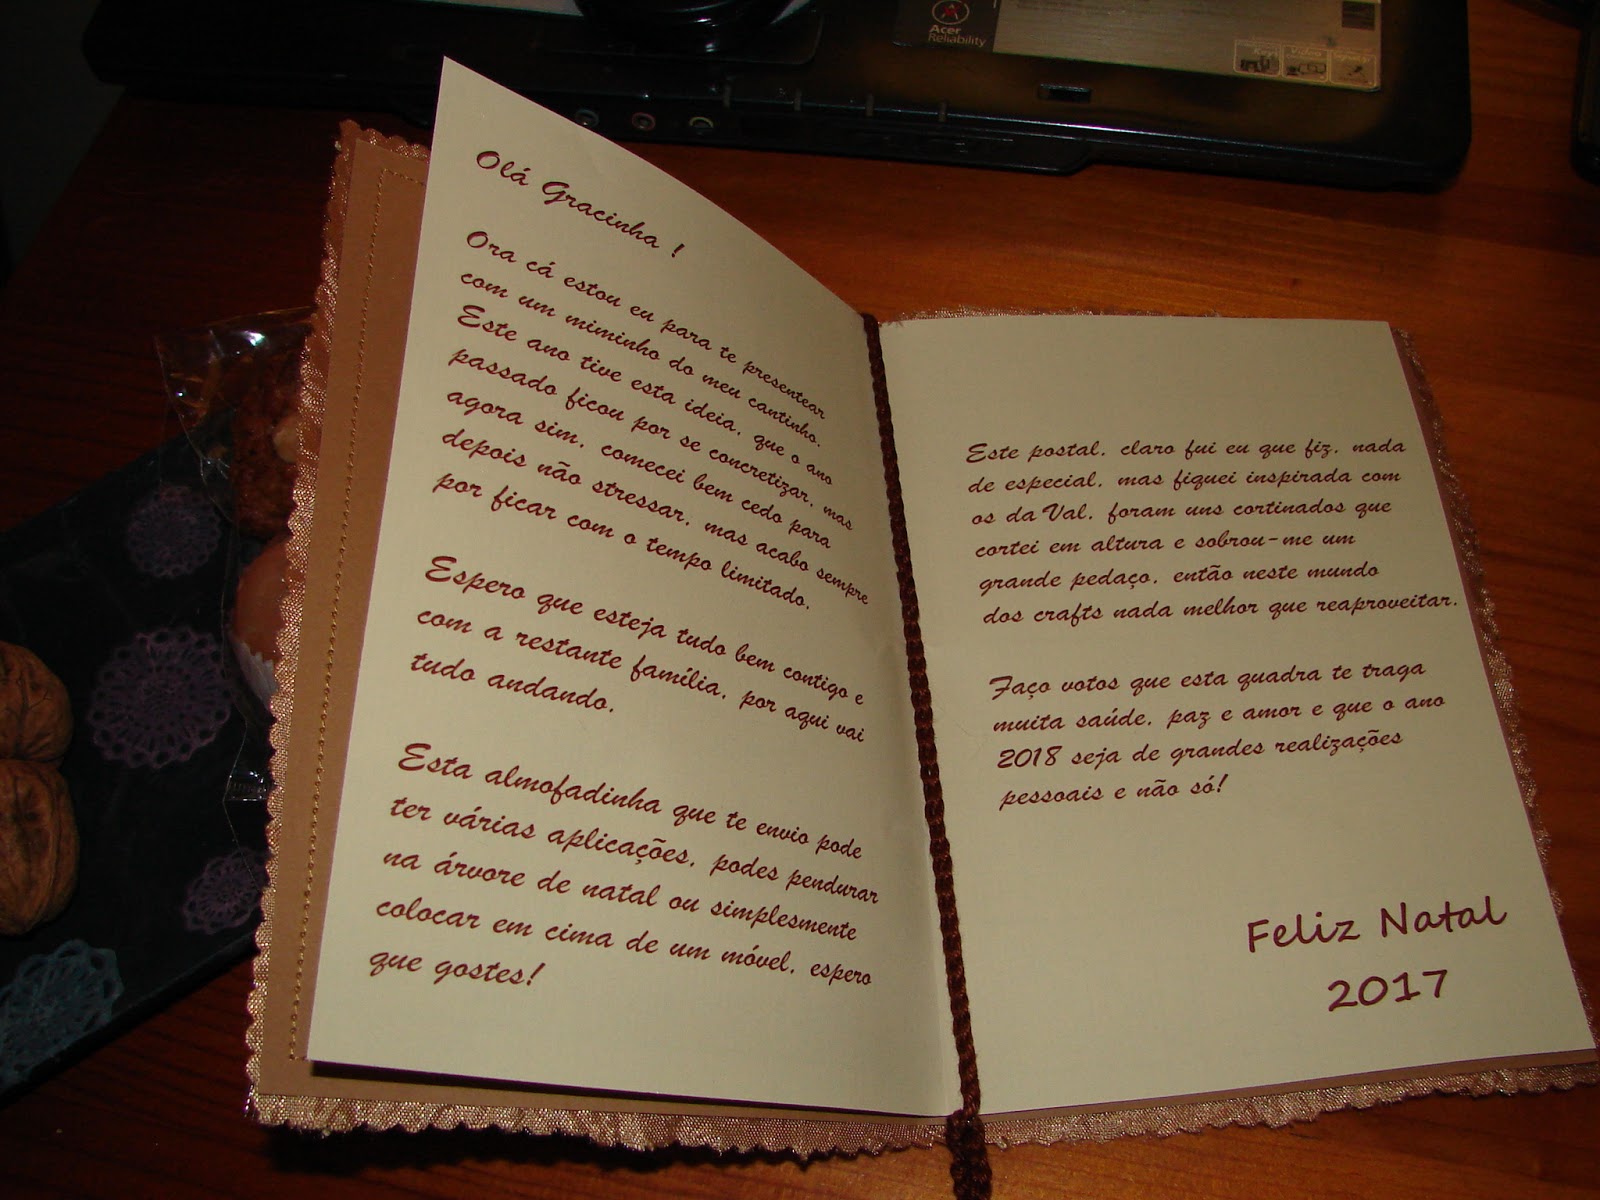 Acer
Reliability
Olá Gracinha !
Ora cá estou eu para te presentear
com um miminho do meu cantinho.
Este ano tive esta ideia, que o ano
passado ficou por se concretizar, mas
agora sim, comecei bem cedo para
depois não stressar, mas acabo sempre
por ficar com o tempo limitado.
Espero que esteja tudo bem contigo e
com a restante família, por aqui vai
tudo andando.
Esta almofadinha que te envio pode
ter várias aplicações, podes pendurar
na árvore de natal ou simplesmente
colocar em cima de um móvel, espero
que gostes!
Este postal, claro fui eu que fiz, nada
de especial, mas fiquei inspirada com
os da Val, foram uns cortinados que
cortei em altura e sobrou-me um
grande pedaço, então neste mundo
dos crafts nada melhor que reaproveitar.
Faço votos que esta quadra te traga
muita saúde, paz e amor e que o ano
2018 seja de grandes realizações
pessoais e não só!
Feliz Natal
2017